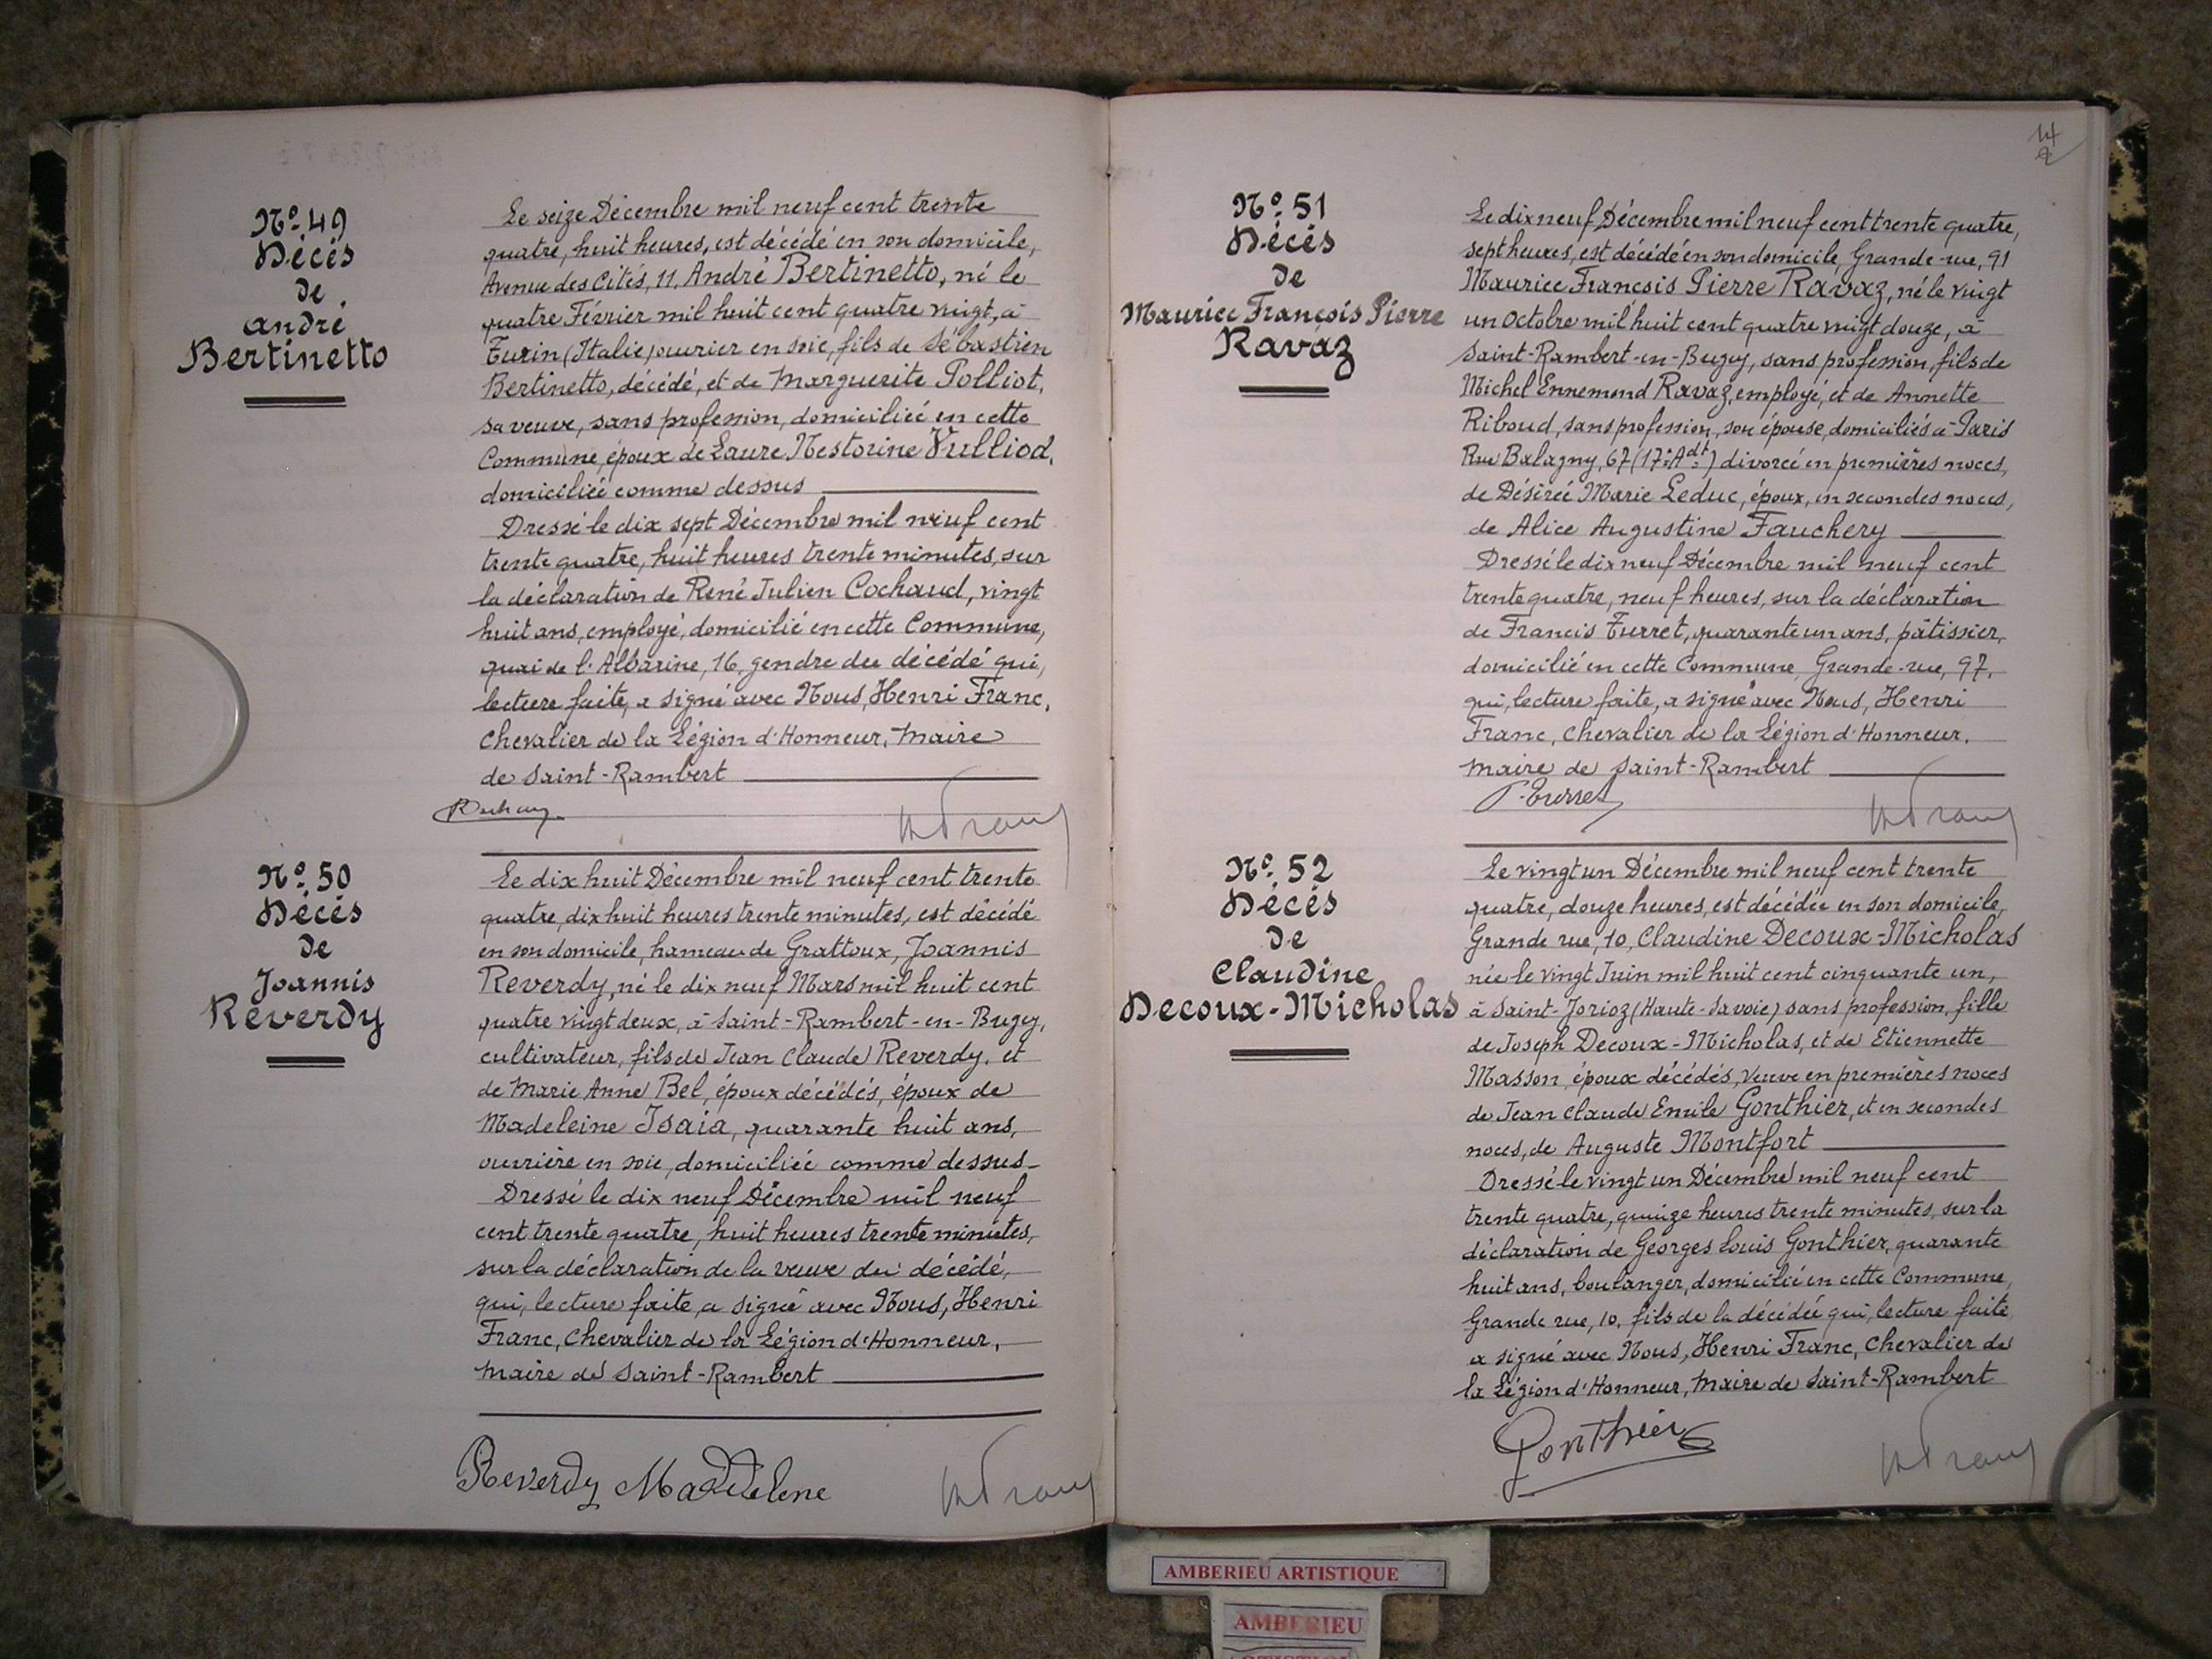 Nº 49
Décès
de
André
Bertinetto
Le seize Décembre mil neuf cent trente
quatre, huit heures, est décédé en son domicile,
Avenue des Cités, 11, André Bertinetto, né le
quatre Février mil huit cent quatre vingt, à
Turin (Italie) ouvrier en soie, fils de Sébastien
Bertinetto, décédé, et de Marguerite Polliot,
sa veuve, sans profession, domiciliée en cette
Commune, époux de Laure Nestorine Vulliod,
domiciliée comme dessus
Dressé le dix sept Décembre mil neuf cent
trente quatre, huit heures trente minutes, sur
la déclaration de René Julien Cochaud, vingt
huit ans, employé, domicilié en cette Commune,
quai de l'Albarine, 16, gendre du décédé qui,
lecture faite, a signé avec Nous, Henri Franc,
Chevalier de la Légion d'Honneur, Maire
de Saint-Rambert
Nº 50
Décès
de
Joannis
Reverdy
Le dix huit Décembre mil neuf cent trente
quatre, dix huit heures trente minutes, est décédé
en son domicile, hameau de Grattoux, Joannis
Reverdy, né le dix neuf Mars mil huit cent
quatre vingt deux, à Saint-Rambert-en-Bugey,
cultivateur, fils de Jean Claude Reverdy, et
de Marie Anne Bel, époux décédés, époux de
Madeleine Isaia, quarante huit ans,
ouvrière en soie, domiciliée comme dessus
Dressé le dix neuf Décembre mil neuf
cent trente quatre, huit heures trente minutes,
sur la déclaration de la veuve du décédé,
qui, lecture faite, a signé avec Nous, Henri
Franc, Chevalier de la Légion d'Honneur,
Maire de Saint-Rambert
Reverdy Madelene
HFranc
Nº 51
Décès
de
Maurice François Pierre
Ravaz
Le dix neuf Décembre mil neuf cent trente quatre,
sept heures, est décédé en son domicile, Grande-rue, 91
Maurice François Pierre Ravaz, né le vingt
un Octobre mil huit cent quatre vingt douze, à
Saint-Rambert-en-Bugey, sans profession, fils de
Michel Ennemond Ravaz, employé, et de Annette
Riboud, sans profession, son épouse, domiciliés à Paris
Rue Balagny, 67 (17e Adt) divorcé en premières noces,
de Désirée Marie Leduc, époux, en secondes noces,
de Alice Augustine Fauchery
Dressé le dix neuf Décembre mil neuf cent
trente quatre, neuf heures, sur la déclaration
de Francis Turret, quarante un ans, pâtissier,
domicilié en cette Commune, Grande-rue, 97,
qui, lecture faite, a signé avec Nous, Henri
Franc, Chevalier de la Légion d'Honneur,
Maire de Saint-Rambert
HFranc
Nº 52
Décès
de
Claudine
Decoux-Micholas
Le vingt un Décembre mil neuf cent trente
quatre, douze heures, est décédée en son domicile,
Grande rue, 10, Claudine Decoux-Micholas
née le vingt Juin mil huit cent cinquante un,
à Saint-Jorioz (Haute-Savoie) sans profession, fille
de Joseph Decoux-Micholas, et de Etiennette
Masson, époux décédés, Veuve en premières noces
de Jean Claude Emile Gonthier, et en secondes
noces, de Auguste Montfort
Dressé le vingt un Décembre mil neuf cent
trente quatre, quinze heures trente minutes, sur la
déclaration de Georges Louis Gonthier, quarante
huit ans, boulanger, domicilié en cette Commune,
Grande rue, 10, fils de la décédée qui, lecture faite
a signé avec Nous, Henri Franc, Chevalier de
la Légion d'Honneur, Maire de Saint-Rambert
Gonthier
HFranc
AMBERIEU ARTISTIQUE
AMBERIEU
ARTISTIQUE